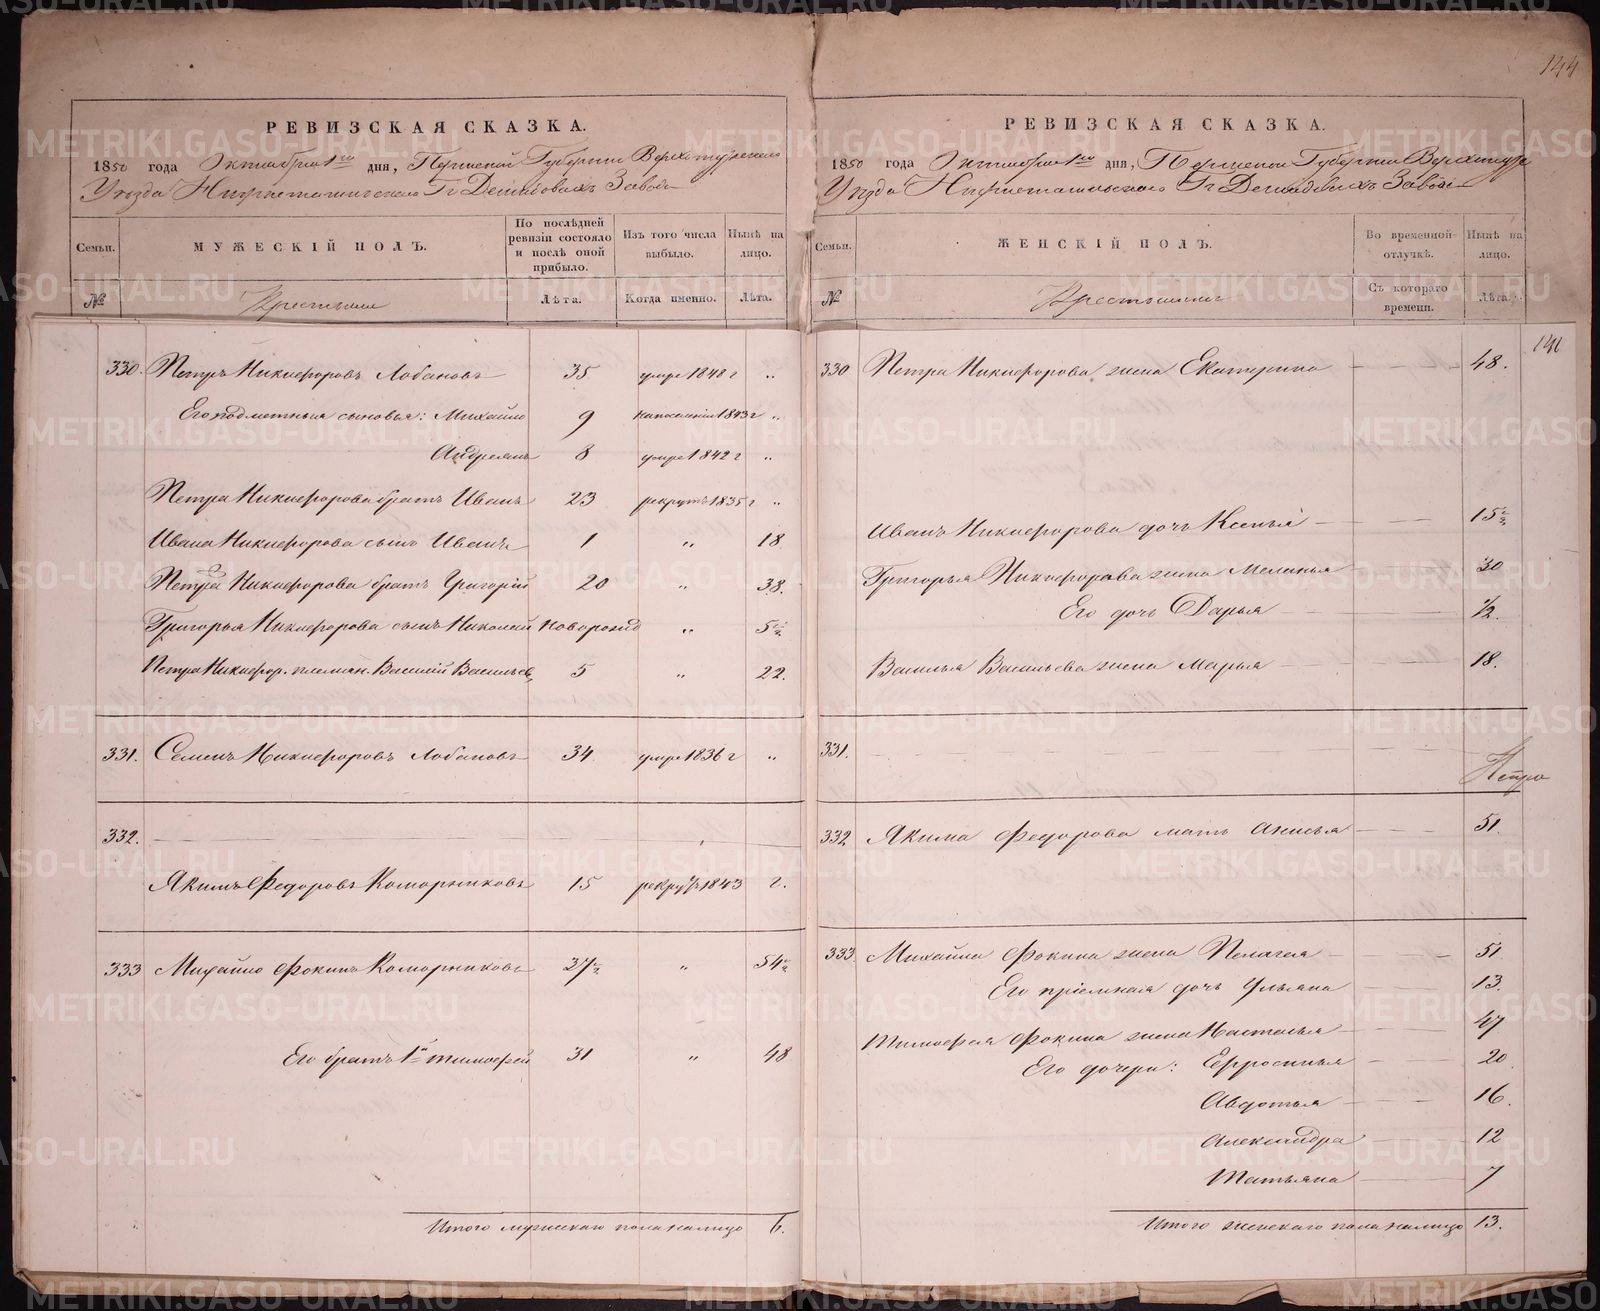 144
РЕВИЗСКАЯ СКАЗКА.
1850 года Октября 1го дня, Пермской Губернии Верхотурскаго
Уѣзда Нижнетагильскаго Гг Демидовыхъ Завода
Семьи.
МУЖЕСКІЙ ПОЛЪ.
По послѣдней ревизіи состояло и послѣ оной прибыло.
Изъ того числа выбыло.
Нынѣ на лицо.
№
Крестьяне
Лѣта.
Когда именно.
Лѣта.
330. Петръ Никифоровъ Лобановъ 35 умре 1848 г „
Его подметныя сыновья: Михайло 9 на поселеніи 1843 г „
Андреянъ 8 умре 1842 г „
Петра Никифорова братъ Иванъ 23 рекрутъ 1835 г „
Ивана Никифорова сынъ Иванъ 1 „ 18
Петра Никифорова братъ Григорій 20 „ 38.
Григорья Никифорова сынъ Николай новорожд „ 5½
Петра Никифор. племян. Василій Васильевъ 5 „ 22.
331. Семенъ Никифоровъ Лобановъ 34 умре 1836 г „
332.
Якимъ Федоровъ Коморниковъ 15 рекрутъ 1843 г.
333 Михайло Фокинъ Коморниковъ 37½ „ 54½
Его братъ 1й Тимофей 31 „ 48
Итого мужескаго пола налицо 6.
РЕВИЗСКАЯ СКАЗКА.
1850 года Октября 1го дня, Пермской Губерніи Верхотурс
Уѣзда Нижнетагильскаго Гг Демидовыхъ Заво
Семьи.
ЖЕНСКІЙ ПОЛЪ.
Во временной отлучкѣ.
Нынѣ на лицо.
№
Крестьянки
Съ котораго времени.
Лѣта.
141
330 Петра Никифорова жена Екатерина 48.
Иванъ Никифорова дочь Ксенья 15½
Григорья Никифорова жена Меланья 30
Его дочь Дарья ½.
Василья Васильева жена Марья 18.
331.
332 Якима Федорова мать Анисья 51
333 Михайла Фокина жена Пелагея 51
Его пріемная дочь Ульяна 13.
Тимофея Фокина жена Настасья 47
Его дочери: Ефросинья 20
Авдотья 16.
Александра 12
Татьяна 7
Итого женскаго пола налицо 13.
METRIKI.GASO-URAL.RU